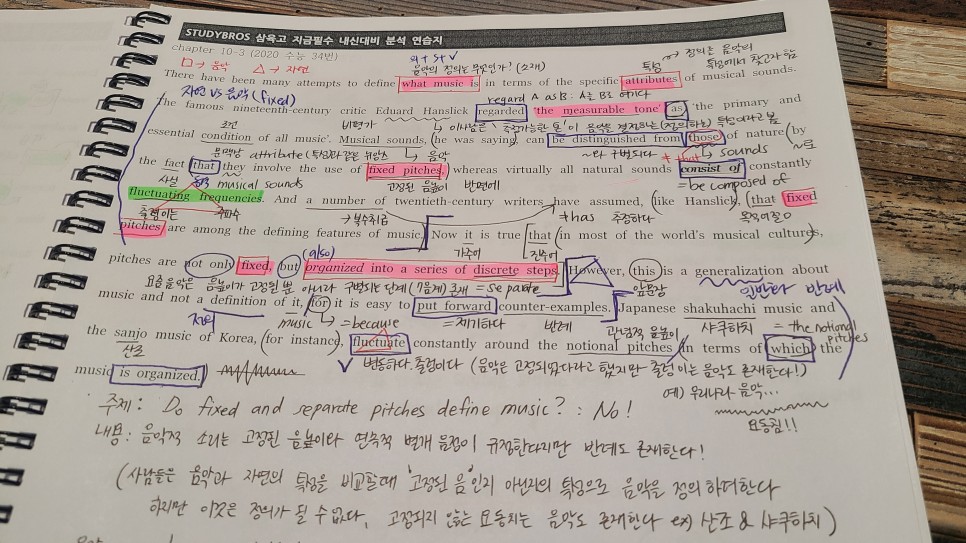 STUDYBROS 삼육고 지금필수 내신대비 분석 연습지
chapter 10-3 (2020 수능 34번)
→ 정의는 음악의
□→ 음악 △→ 자연 음악의 정의는 무엇인가? (소재) 특성 특성에서
There have been many attempts to define what music is in terms of the specific attributes of musical sounds.
자연 vs 음악 (fixed) regard A as B : A를 B로 여기다
The famous nineteenth-century critic Eduard Hanslick regarded 'the measurable tone' as 'the primary and
조건 비평가
essential condition of all music'. Musical sounds, he was saying, can be distinguished from those of nature by
attribute 음악 ~와 구별되다 that → sounds
the fact that they involve the use of fixed pitches, whereas virtually all natural sounds consist of constantly
사실 musical sounds 고정된 음높이 반면에 = be composed of
fluctuating frequencies. And a number of twentieth-century writers have assumed, like Hanslick, that fixed
출렁이는 주파수 → 복수취급 has
pitches are among the defining features of music. Now it is true that in most of the world's musical cultures,
(also) 가주어 진주어
pitches are not only fixed, but organized into a series of discrete steps. However, this is a generalization about
요즘 음악은 음높이가 고정된 뿐 아니라 구별되는 단계 (7음계) 존재 = separate 앞문장 반례
music and not a definition of it, for it is easy to put forward counter-examples. Japanese shakuhachi music and
music → = because = 제기하다 반례 관념적 음높이 샤쿠하치 = the notional pitches
the sanjo music of Korea, for instance, fluctuate constantly around the notional pitches in terms of which the
산조
music is organized. 변동하다, 출렁이다 (음악은 고정되었다라고 했지만 출렁이는 음악도 존재한다!)
예) 우리나라 음악...
요동침!!
주제 : Do fixed and separate pitches define music? : No!
내용 : 음악적 소리는 고정된 음높이와 연속적 별개 음정이 규정한다지만 반례도 존재한다!
(사람들은 음악과 자연의 특성을 비교할때 '고정된 음'인지 아닌지의 특성으로 음악을 정의 하려한다
하지만 이것은 정의가 될 수 없다. 고정되지 않는 요동치는 음악도 존재한다 ex) 산조 & 샤쿠하치)